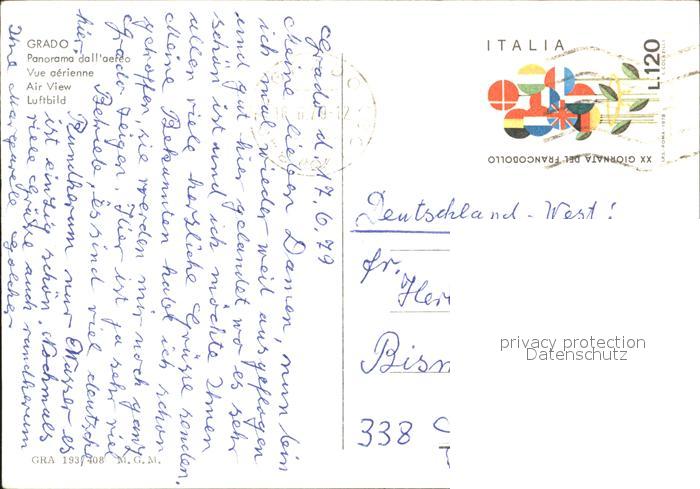 GRADO
Panorama dall'aereo
Vue aérienne
Air View
Luftbild
Grado d. 17.6.79
Meine lieben Damen, nun bin
ich mal wieder weit ausgeflogen
und gut hier gelandet wo es sehr
schön ist und ich möchte Ihnen
allen viele herzliche Grüsse senden.
Meine Bekannten habe ich schon
getroffen, sie werden mir noch ganz
Grado zeigen. Hier ist ja sehr viel
Betrieb, es sind viel deutsche
hier. Rundherum nur Wasser es
ist einzig schön. Nochmals
viele Grüsse auch rundherum
Ihre
GRA 193/408 M.G.M.
ITALIA
L.120
XX GIORNATA DEL FRANCOBOLLO
I.P.S.-ROMA-1978
Deutschland-West!
Fr.
Bism
338
privacy protection
Datenschutz